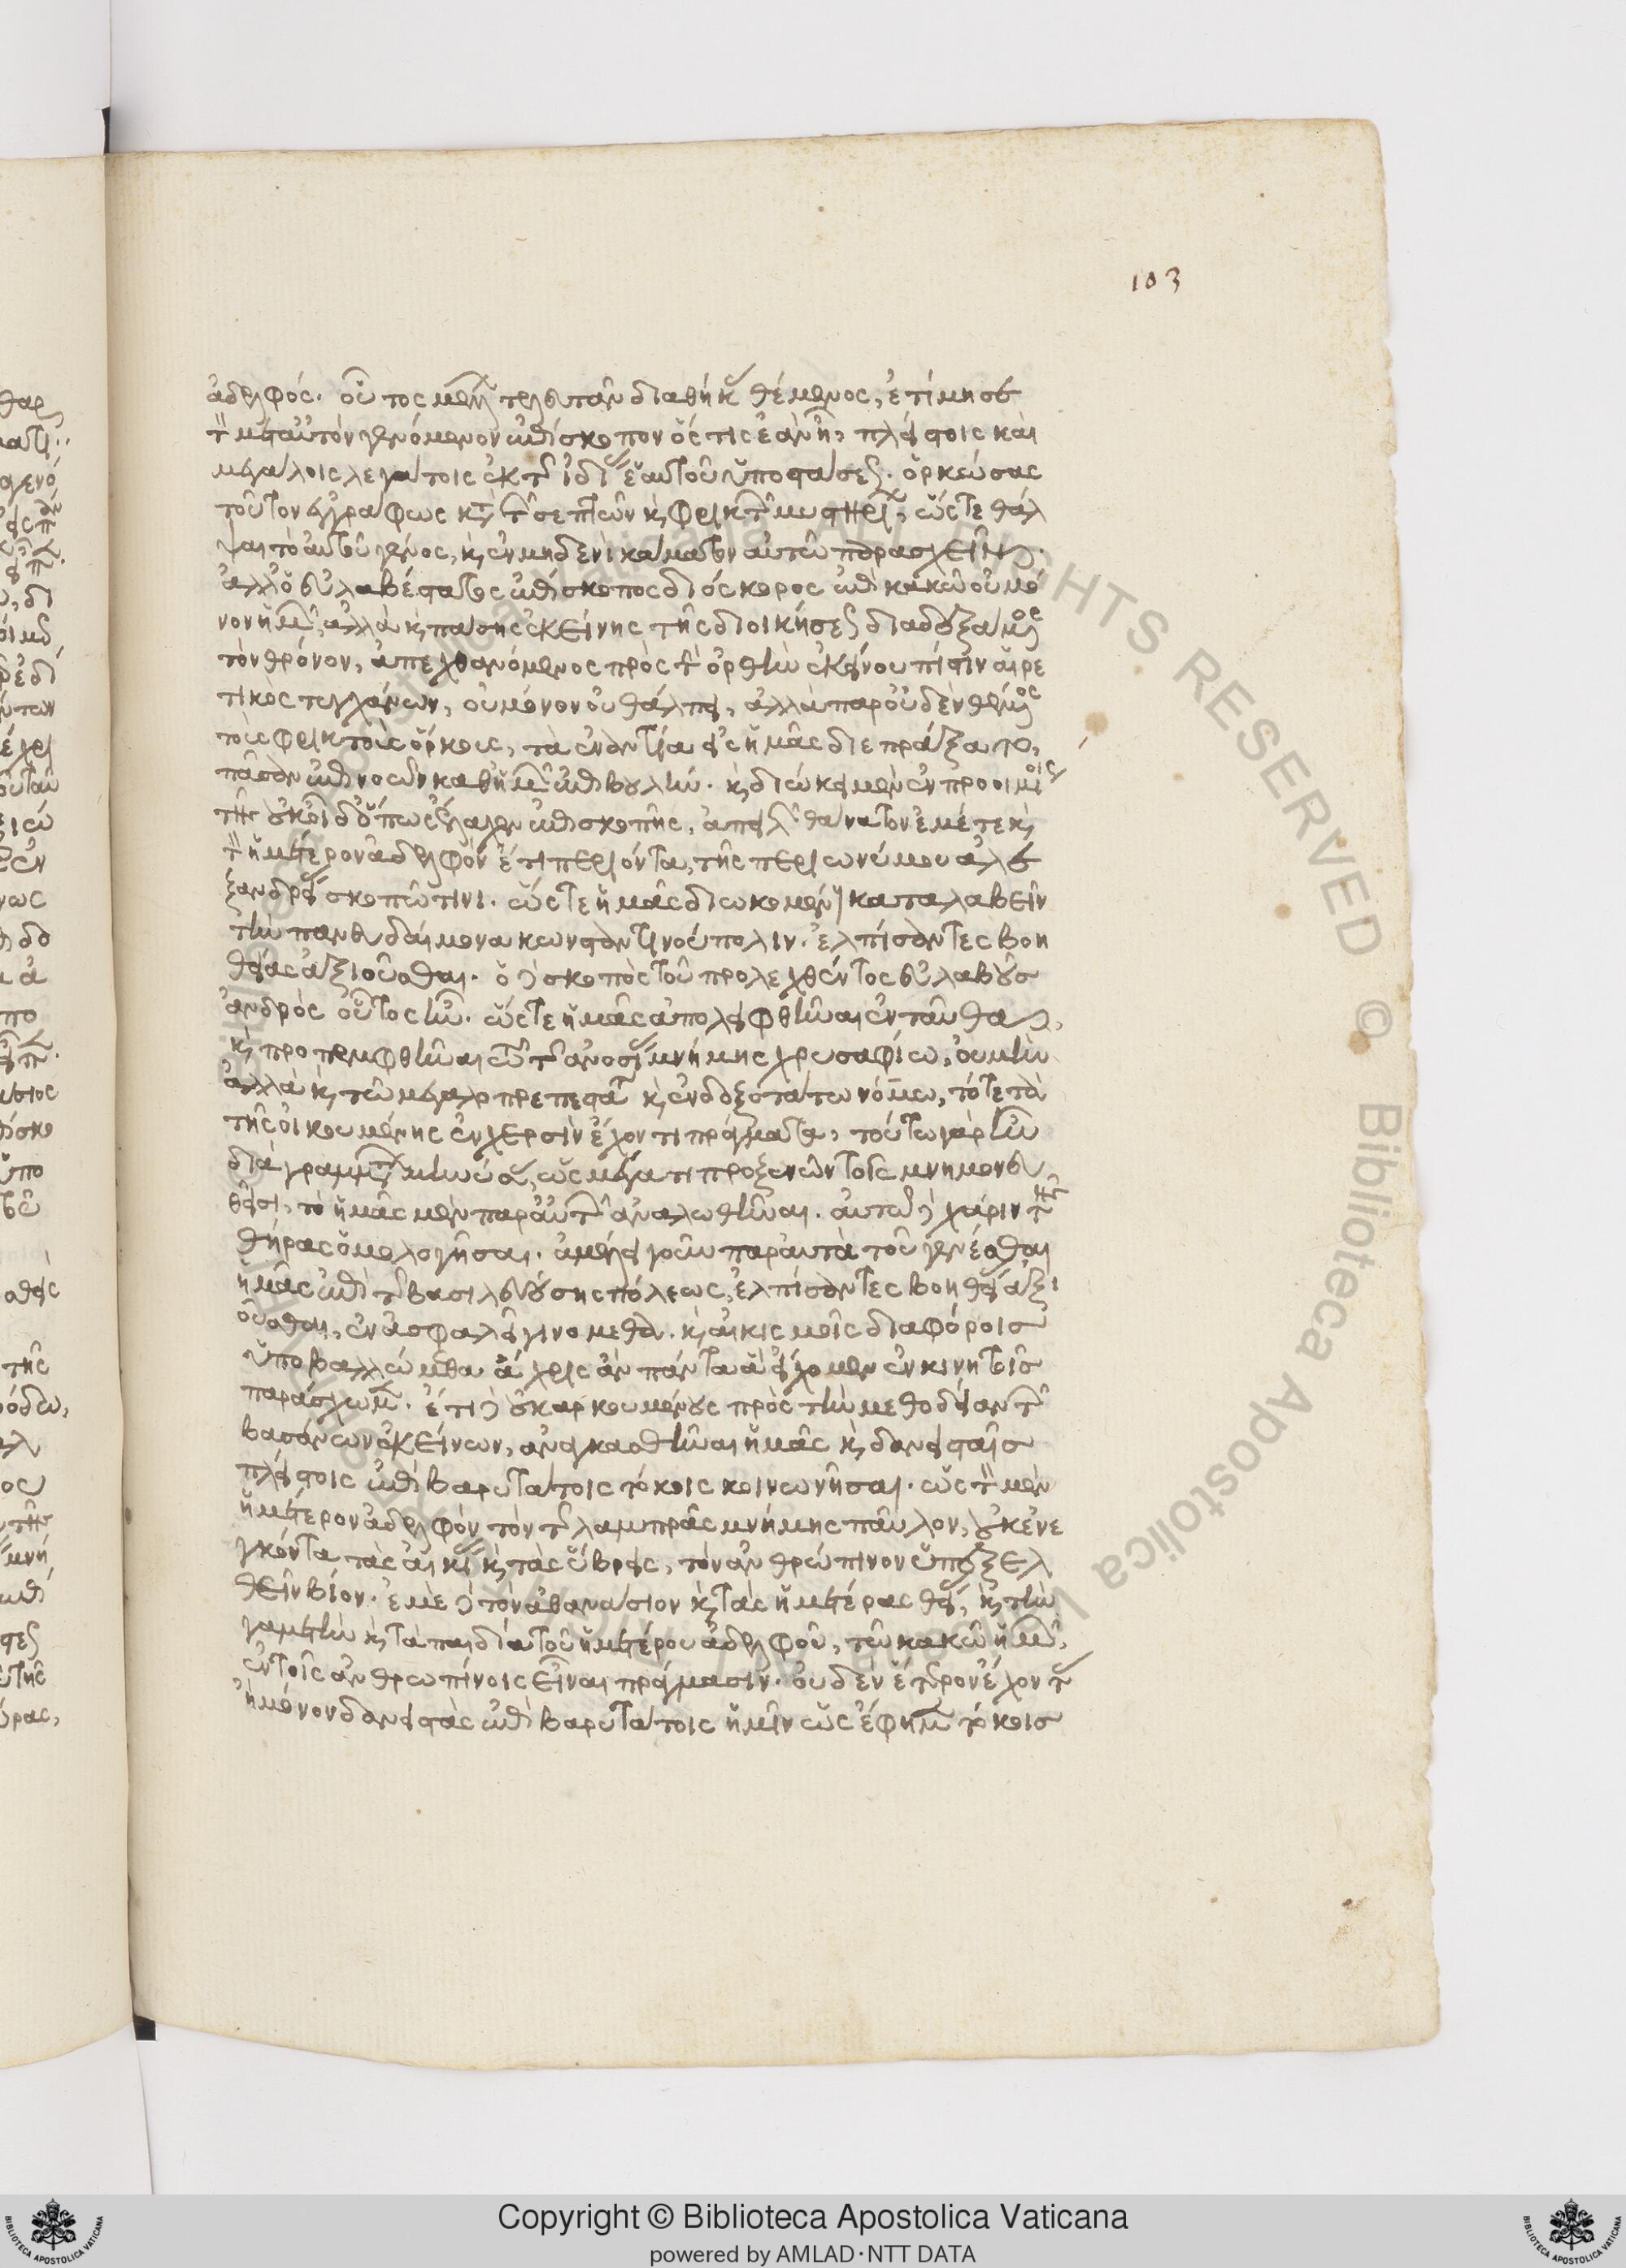 103
ἀδελφός. οὗτος μέλλων τελευτᾶν διαθήκας θέμενος, ἐτίμησε
τὸν μετ αὐτὸν γενόμενον ἐπίσκοπον ὅς τις ἐὰν ᾖ, πλείστοις καὶ
μεγάλοις λεγάτοις ἐκ τῆς ἰδίας ἑαυτοῦ ὑποστάσεως. ὁρκεύσας
τοῦτον ἐγγράφως κατὰ τῶν σεπτῶν καὶ φρικτῶν μυστηρίων, ὥστε θάλ
ψαι τὸ αὐτοῦ γένος, καὶ ἐν μηδενὶ καμάτους αὐτῷ παρασχεῖν.
ἀλλ ὁ εὐλαβέστατος ἐπίσκοπος διόσκορος ἐπὶ κακῷ οὐ μό
νον ἡμῶν, ἀλλὰ καὶ πάσης ἐκείνης τῆς διοικήσεως διαδεξάμενος
τὸν θρόνον, ἀπεχθανόμενος πρὸς τὴν ὀρθὴν ἐκείνου πίστιν αἱρε
τικὸς τυγχάνων, οὐ μόνον οὐ θάλπει, ἀλλὰ παρ οὐδὲν θέμενος
τοὺς φρικτοὺς ὅρκους, τὰ ἐναντία εἰς ἡμᾶς διεπράξατο,
πᾶσαν ἐπινοῶν καθ ἡμῶν ἐπιβουλήν. καὶ διώκει μὲν ἐν προοιμίοις
τῆς οὐκ οἶδ ὅπως ἔλαχεν ἐπισκοπῆς, ἀπειλῶν θάνατον ἐμέ τε καὶ
τὸν ἡμέτερον ἀδελφὸν ἔτι περιόντα, τῆς περιωνύμου ἀλε
ξανδρείας σκοπῷ τινι. ὥστε ἡμᾶς διωκομένους καταλαβεῖν
τὴν πανευδαίμονα κωνσταντινούπολιν. ἐλπίσαντες βοη
θείας ἀξιοῦσθαι. ὁ δὲ σκοπὸς τοῦ προλεχθέντος εὐλαβοῦς
ἀνδρὸς οὗτος ἦν. ὥστε ἡμᾶς ἀπολειφθῆναι ἐνταῦθα,
καὶ προπεμφθῆναι τῷ τῆς ἀνοσίας μνήμης χρυσαφίῳ, οὐ μὴν
ἀλλὰ καὶ τῷ μεγαλοπρεπεστάτῳ καὶ ἐνδοξοτάτῳ νόμῳ, τότε τὰ
τῆς οἰκουμένης ἐν χερσὶν ἔχοντι πράγματα, τούτῳ γὰρ ἦν
διὰ γραμμάτων μηνύσας, ὡς μέγα τι προξενῶν τοῖς μνημονευ
θεῖσι, τὸ ἡμᾶς μὲν παρ αὐτῶν ἀναλωθῆναι. αὐτῷ δὲ χάριν τῆς
θήρας ὁμολογῆσαι. ἀμέλει γοῦν παρ αὐτὰ τοῦ γενέσθαι
ἡμᾶς ἐπὶ τῆς βασιλευούσης πόλεως, ἐλπίσαντες βοηθείας ἀξι
οῦσθαι, ἐν ἀσφαλεῖ γινόμεθα. καὶ αἰκισμοῖς διαφόροις
ὑποβαλλόμεθα ἄχρις ἂν πάντα ἃ εἴχομεν ἐν κινητοῖς
παράσχωμεν. ἔτι δὲ οὐκ ἀρκουμένους πρὸς τὴν μεθοδείαν τῶν
βασάνων ἐκείνων, ἀναγκασθῆναι ἡμᾶς καὶ δανεισταῖς
πλείστοις ἐπὶ βαρυτάτοις τόκοις κοινωνῆσαι. ὡς τὸν μὲν
ἡμέτερον ἀδελφὸν τὸν τῆς λαμπρᾶς μνήμης παῦλον, οὐκ ἐνε
γκόντα τὰς αἰκίας καὶ τὰς ὕβρεις, τὸν ἀνθρώπινον ὑπεξελ
θεῖν βίον. ἐμὲ δὲ τὸν ἀθανάσιον καὶ τὰς ἡμετέρας θείας, καὶ τὴν
γαμετὴν καὶ τὰ παιδία τοῦ ἡμετέρου ἀδελφοῦ, τῷ κακῷ ἡμῶν,
ἐν τοῖς ἀνθρωπίνοις εἶναι πράγμασιν. οὐδὲν ἕτερον ἔχοντας
ἢ μόνον δανειστὰς ἐπὶ βαρυτάτοις ἡμῖν ὡς ἔφημεν τόκοις
Copyright © Biblioteca Apostolica Vaticana
powered by AMLAD·NTT DATA